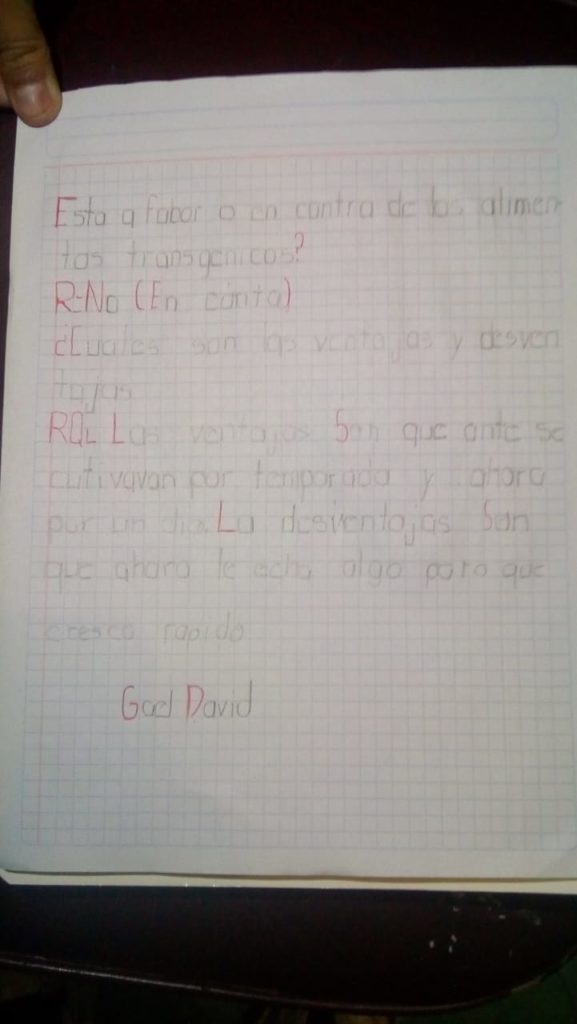 Esta a fabor o en contra de los alimen
tos transgenicos?
R=No (En conta)
¿Cuales son las ventajas y desven
tajas
Las ventajas Son que ante se
cutivavan por temporada y ahora
por un dia. La desventajas Son
que ahora le echa algo para que
cresca rapido
Gael David